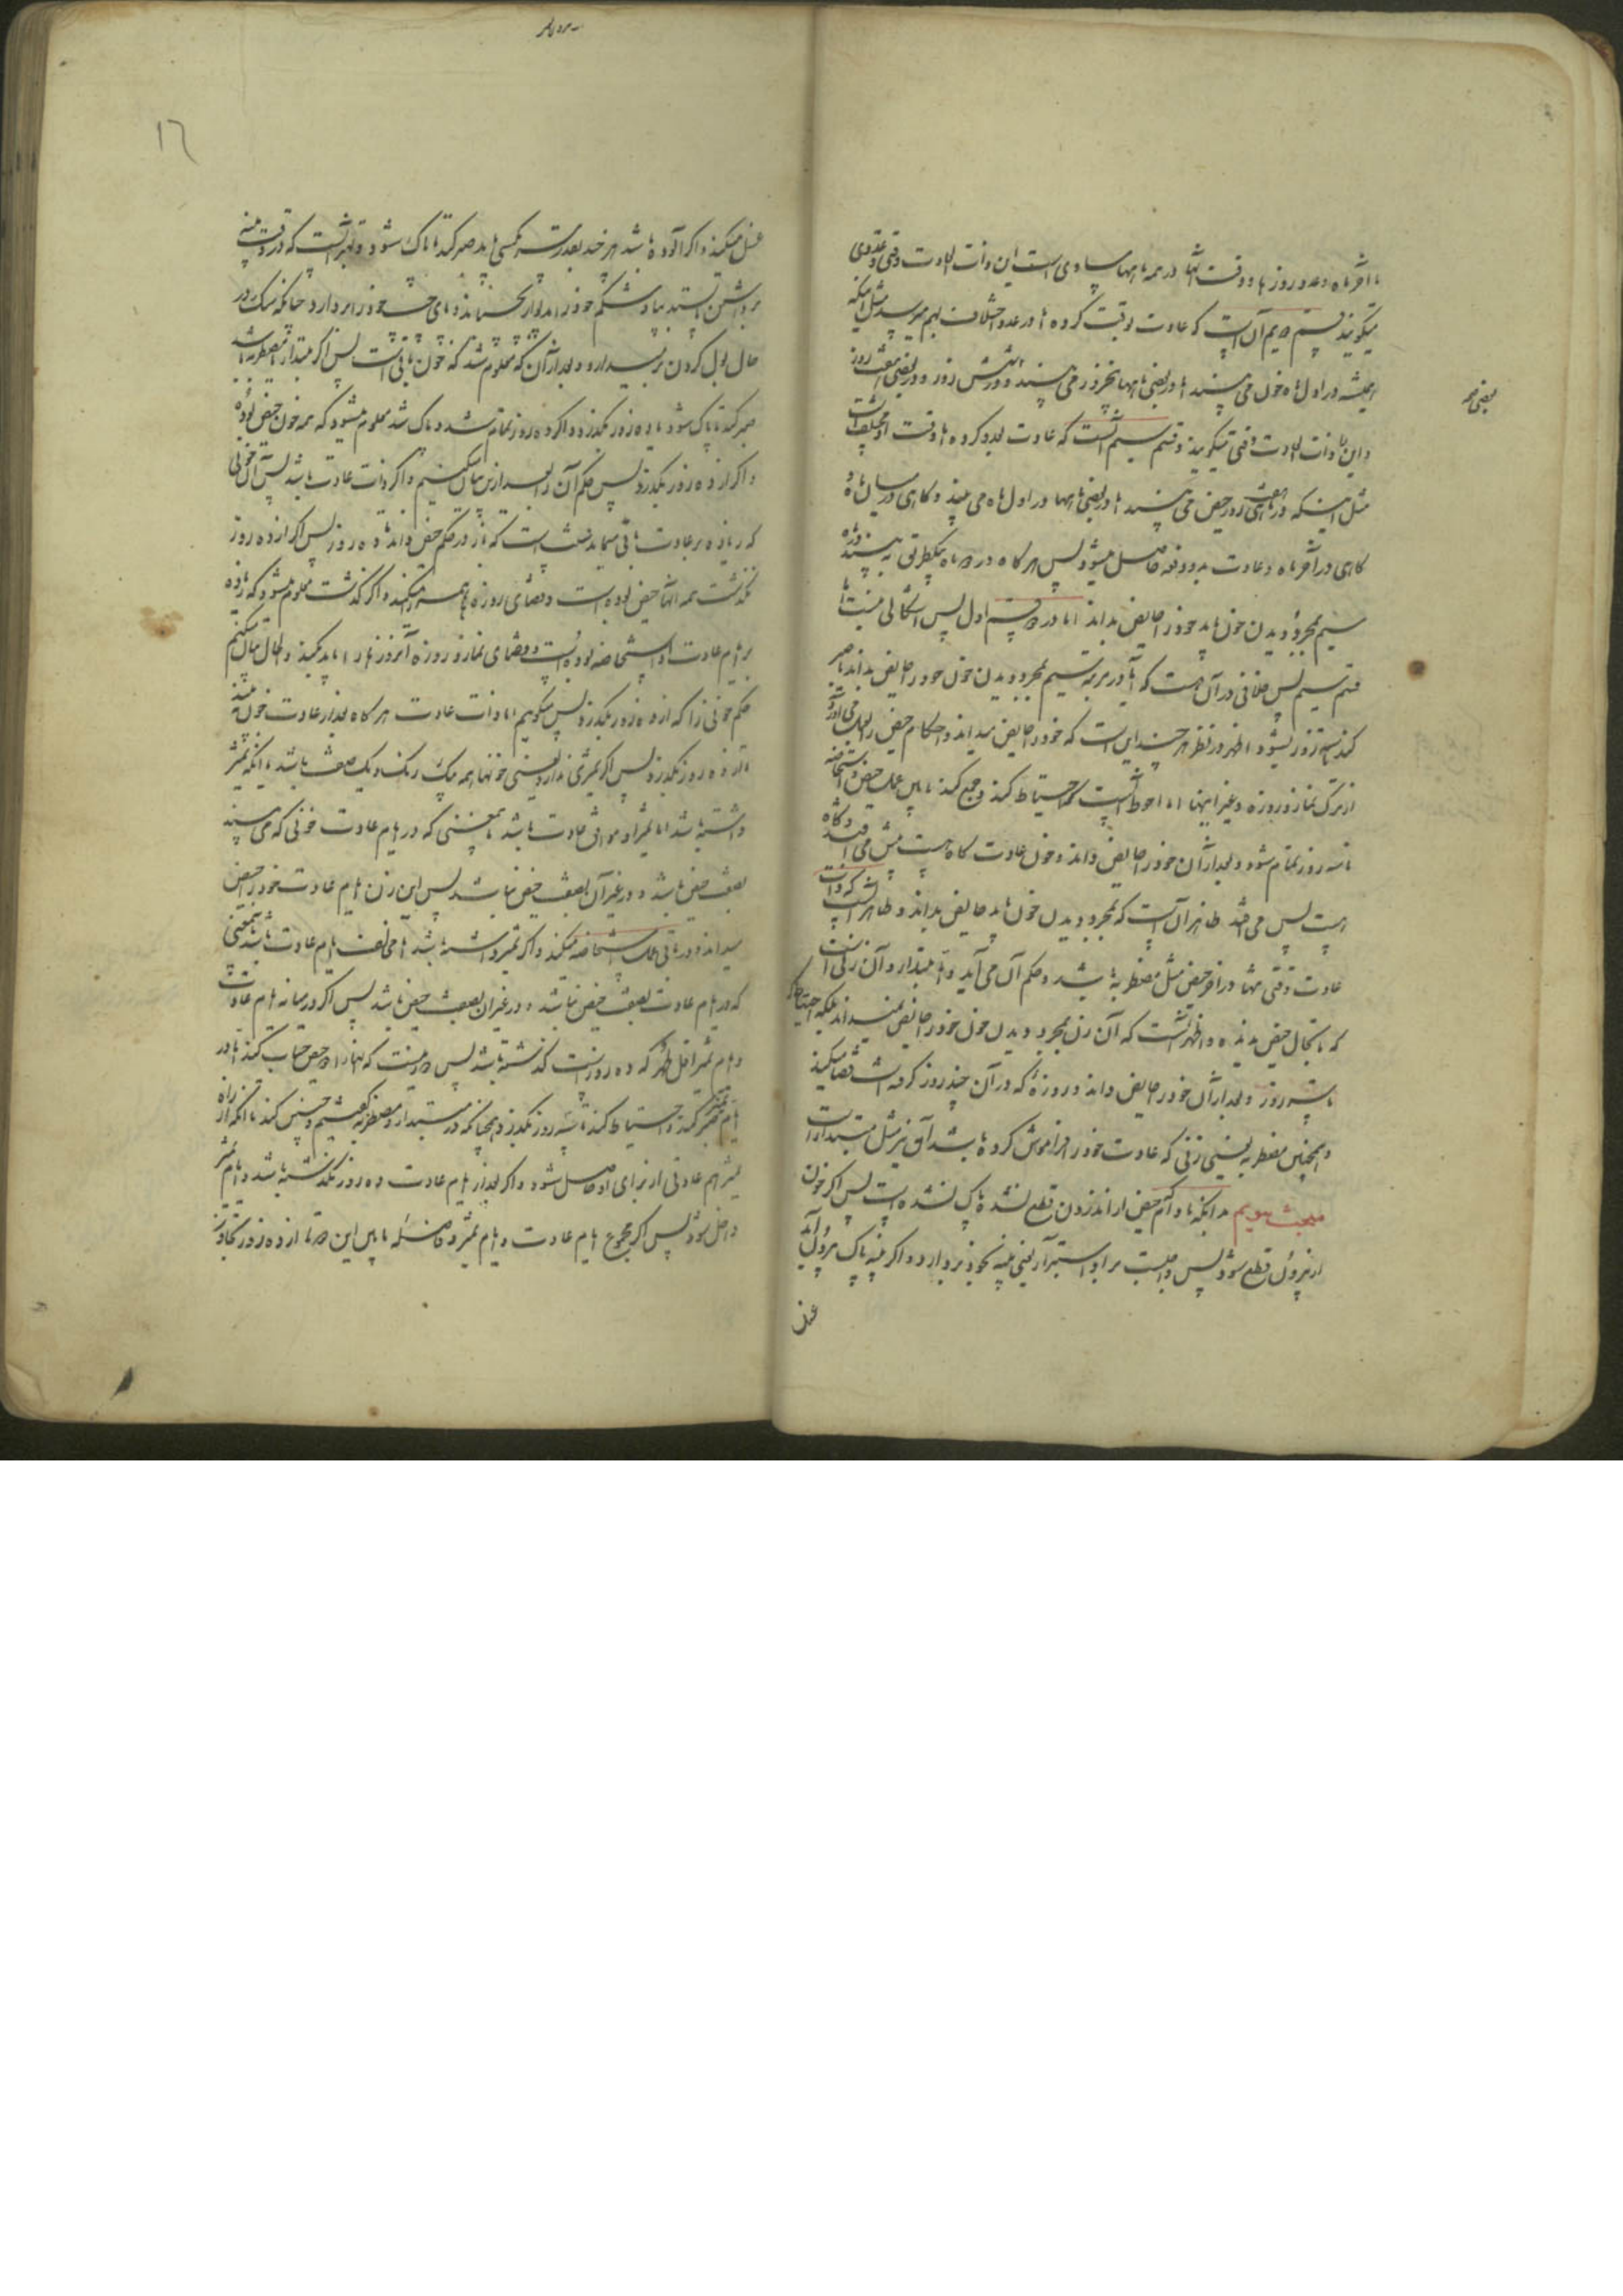 تا آخر ماه و عدد روزها و وقت آنها در همه ماهها مساوی است این را ذات العادت وقتی و عددی
میگویند قسم دویم آن است که عادت بوقت کرده اما در عدد اختلاف بهم میرسد مثل اینکه
همیشه در اول ماه خون می بیند اما در بعضی ماهها پنج روز می بیند و در بعضی شش روز و در بعضی هفت روز
و این را ذات العادت وقتی میگویند و قسم سیم آنست که عادت بعدد کرده اما وقت او مختلف است
مثل اینکه در ماهی هفت روز حیض می بیند اما در بعضی ماهها در اول ماه می بیند و گاهی در میان ماه و
گاهی در آخر ماه و عادت بدو دفعه حاصل میشود پس هر گاه در دو ماه بیکطریق به بیند در ماه
سیم بمجرد دیدن خون باید خود را حایض بداند اما در دو قسم اول پس اشکالی نیست اما
قسم سیم پس خلافی در آن هست که آیا در مرتبه سیم بمجرد دیدن خون خود را حایض بداند یا صبر
کند تا سه روز بشود و اظهر در نظر هر چند این است که خود را حایض میداند و احکام حیض را بعمل می آورد
از ترک نماز و روزه و غیر اینها اما احوط آنست که احتیاط کند و جمع کند مابین عمل حیض و استحاضه
تا سه روز تمام شود و بعد از آن خود را حایض داند و خون عادت گاه هست پیش می افتد و گاه
هست پس می افتد ظاهر آن است که بمجرد دیدن خون باید حایض بداند و ظاهر آنست که ذات
عادت وقتی تنها در آخر حیض مثل مضطربه باشد و حکم آن می آید و اما مبتداء و آن زنی است
که تا بحال حیض ندیده و اظهر آنست که آن زن بمجرد دیدن خون خود را حایض نمیداند بلکه احتیاط کند
تا سه روز و بعد از آن خود را حایض داند و روزهٔ که در آن چند روز گرفته است قضا میکند
و همچنین مضطربه یعنی زنی که عادت خود را فراموش کرده باشد آن نیز مثل مبتداء است
مبحث سویم بدانکه تا دم حیض از اندرون قطع نشده پاک نشده است پس اگر خون
از بیرون قطع شود پس واجبست بر او استبراء یعنی پنبه بخود بردارد و اگر پنبه پاک بیرون آید
غسل
بعضی
۱۶
غسل میکند و اگر آلوده باشد هر چند بقدر سر مگسی باید صبر کند تا پاک شود و بهتر آنست که در وقت پنبه
برداشتن ایستد و شکم خود را بدیوار بچسباند و پای چپ خود را بردارد چنانکه سگ در
حال بول کردن بر میدارد و بعد از آن که معلوم شد که خون باقی است پس اگر مبتداء یا مضطربه باشد
صبر کند تا پاک شود یا ده روز بگذرد و اگر ده روز تمام شد و پاک شد معلوم میشود که همه خون حیض بوده
و اگر از ده روز بگذرد پس حکم آن را بعد ازین بیان میکنیم و اگر ذات عادت باشد پس آن خونی
که زیاده بر عادت باقی میماند است که باز در حکم حیض داند تا ده روز پس اگر از ده روز
نگذشت همه آنها حیض بوده است و قضای روزه را هم میکند و اگر گذشت معلوم میشود که زیاده
بر ایام عادت او استحاضه بوده است و قضای نماز و روزه آنروزها را باید بکند و الحال بیان میکنیم
حکم خونی را که از ده روز بگذرد پس میگویم اما ذات عادت هر گاه بعد از عادت خون به بیند
تا از ده روز بگذرد پس اگر تمیزی ندارد یعنی خونها همه یک رنگ و یک صفت باشد یا اینکه تمیز
داشته باشد اما تمیز او موافق عادت باشد باینمعنی که در ایام عادت خونی که می بیند
بصفت حیض باشد و در غیر آن بصفت حیض نباشد پس این زن ایام عادت خود را حیض
میداند و در باقی عمل استحاضه میکند و اگر تمیز داشته باشد اما مخالف ایام عادت باشد باینمعنی
که در ایام عادت بصفت حیض نباشد و در غیر آن بصفت حیض باشد پس اگر در میانه ایام عادت
و ایام تمیز اقل طهر که ده روز است گذشته باشد پس دور نیست که هر دو را حیض حساب کند اما در
ایام تمیز صبر کند و احتیاط کند تا سه روز بگذرد همچنانکه در مبتداء و مضطربه گفتیم و چنین کند تا آنکه از راه
تمیز هم عادتی از برای او حاصل شود و اگر بعد از ایام عادت ده روز نگذشته باشد و ایام تمیز
داخل شود پس اگر مجموع ایام عادت و ایام تمیز و فاصله مابین این دو تا از ده روز تجاوز